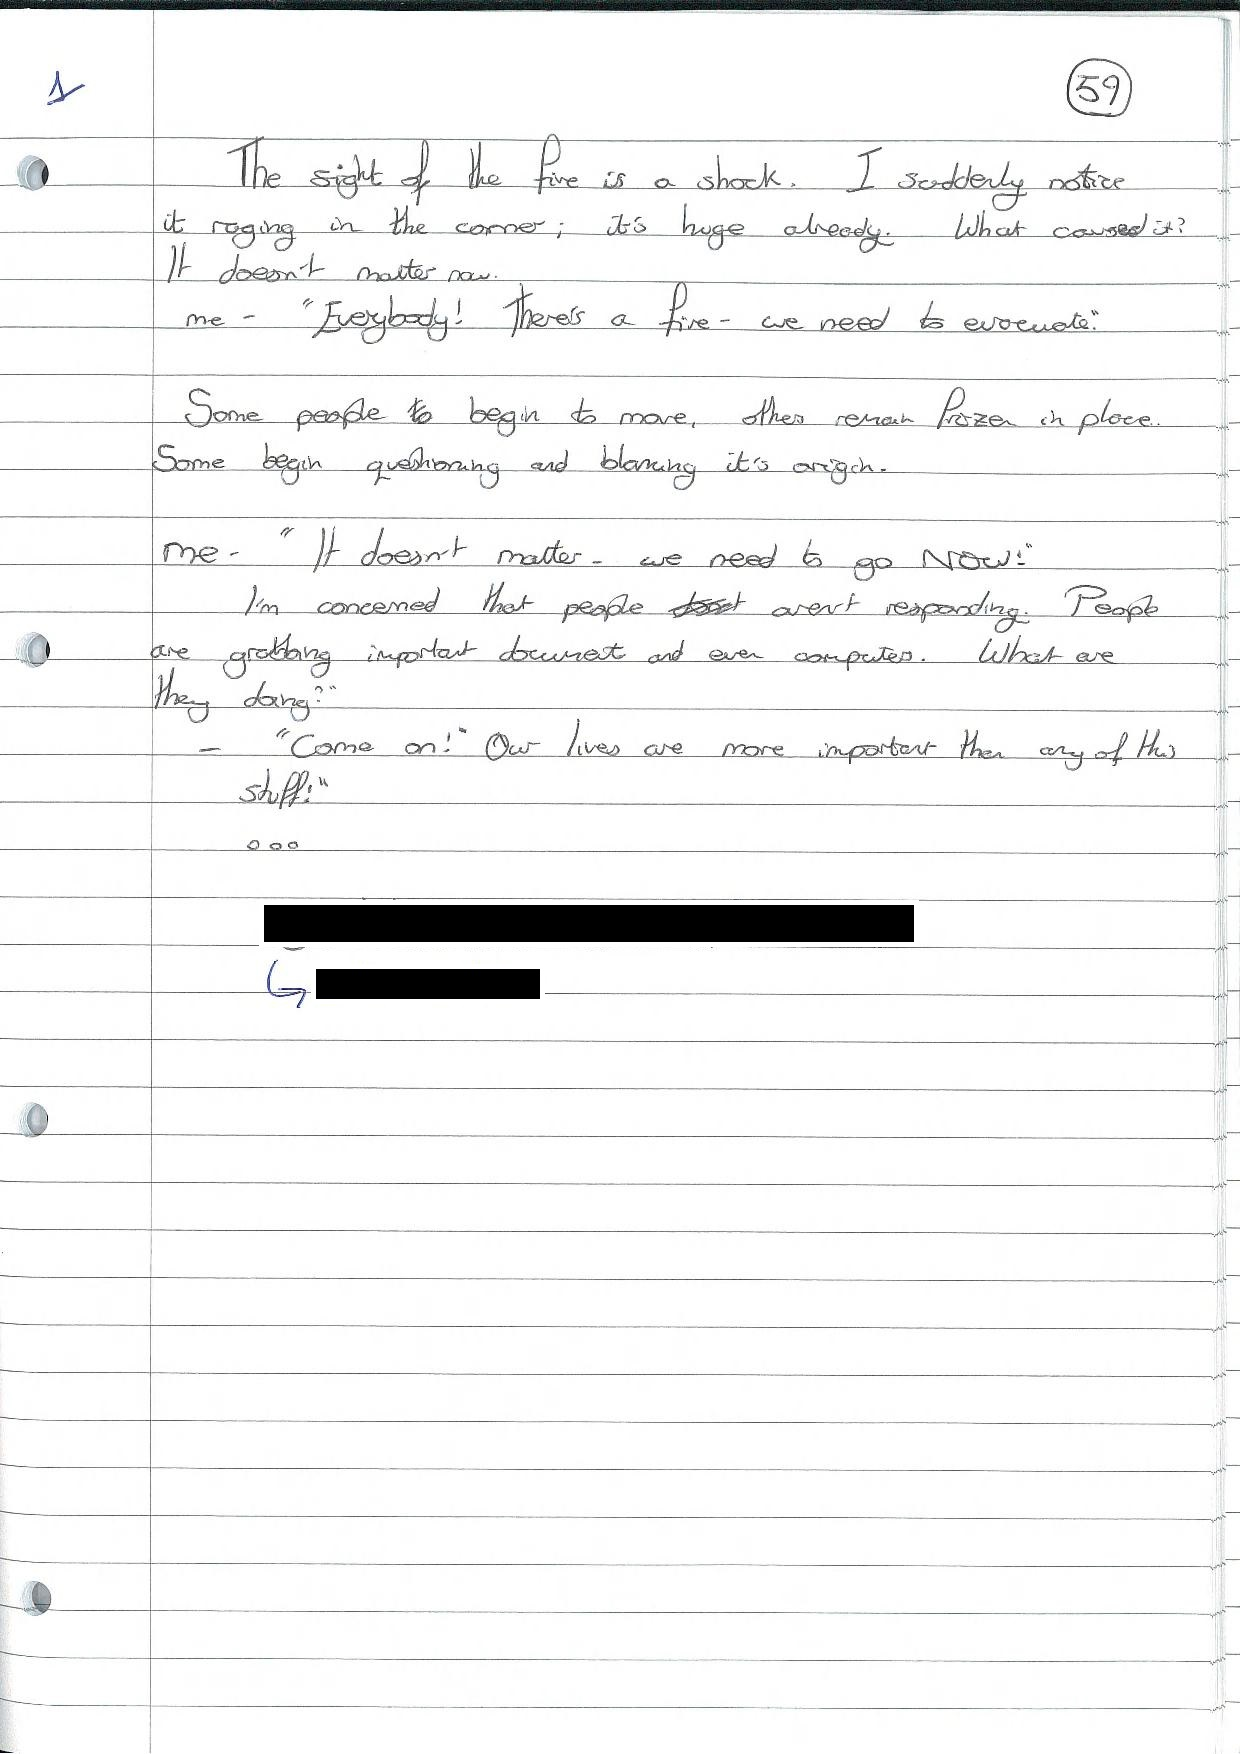 1
59
The sight of the fire is a shock. I suddenly notice
it raging in the corner; it's huge already. What caused it?
It doesn't matter now.
me - "Everybody! There's a fire - we need to evacuate."
Some people to begin to move, others remain frozen in place.
Some begin questioning and blaming it's origin.
me - "It doesn't matter - we need to go NOW!"
I'm concerned that people aren't responding. People
are grabbing important document and even computers. What are
they doing?"
- "Come on!" Our lives are more important than any of this
stuff!"
...